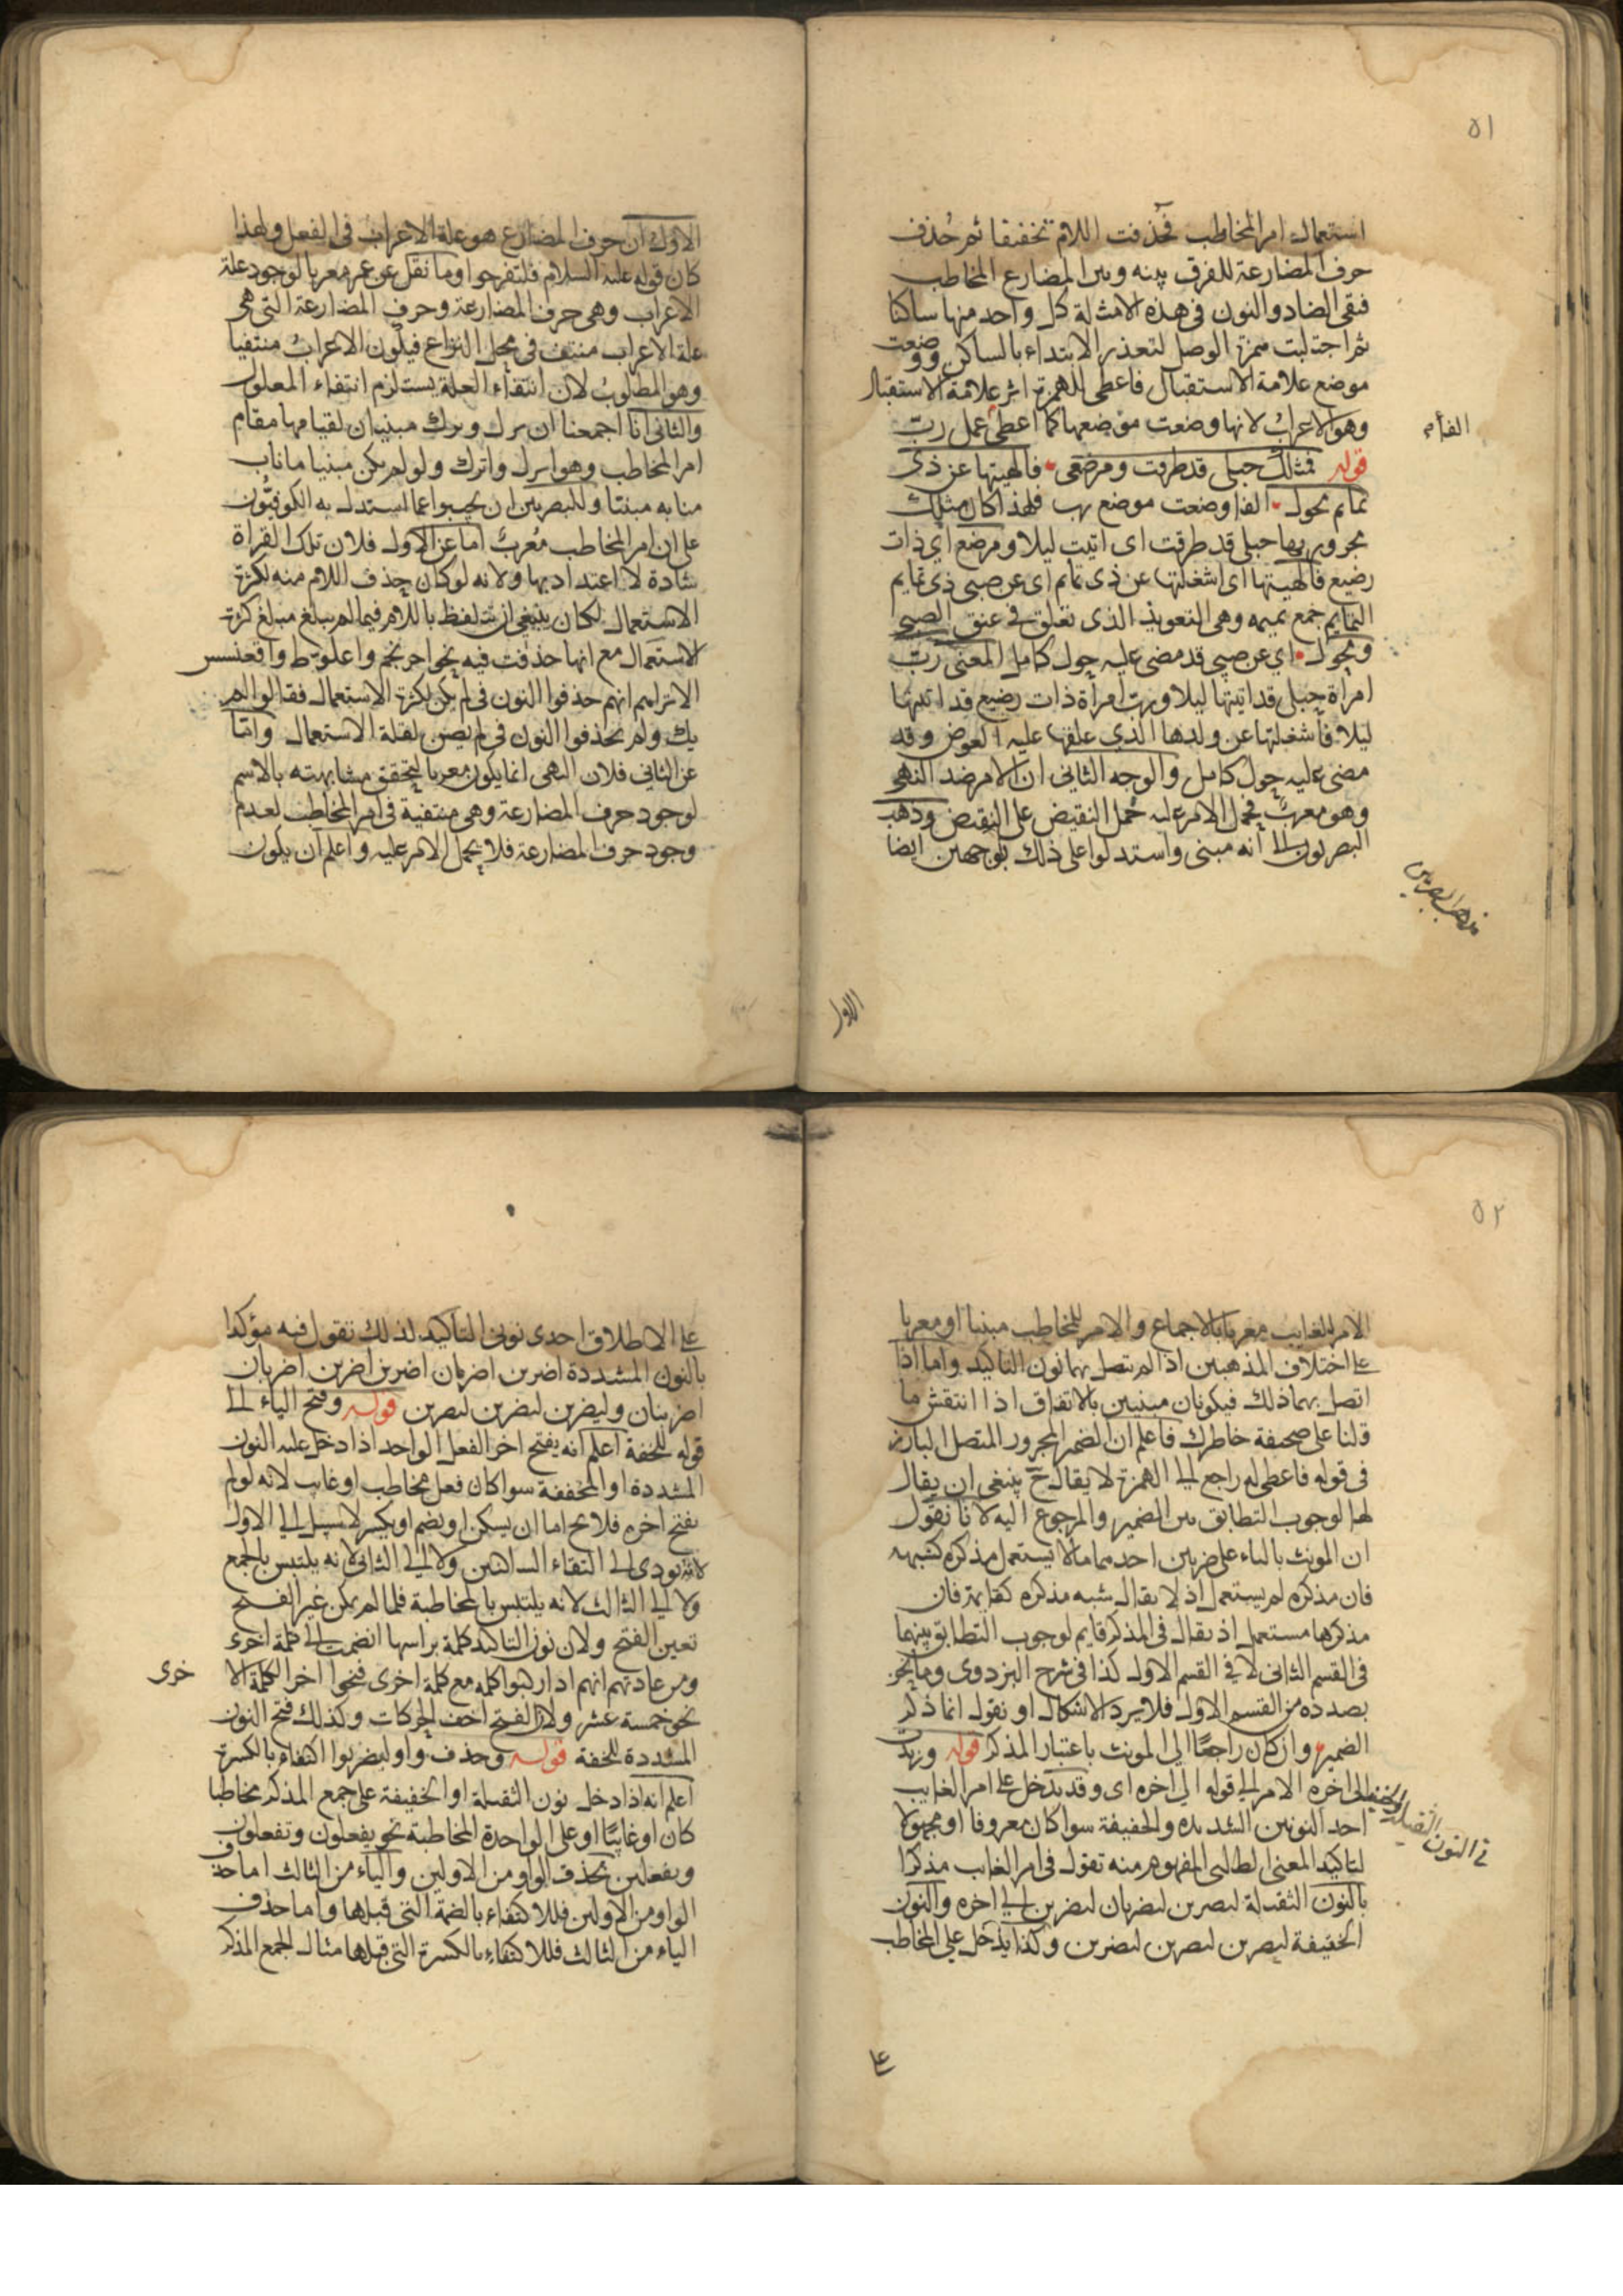 ٥١
استعمال امر المخاطب فحذفت اللام تخفيفا ثم حُذف
حرف المضارعة للفرق بينه وبين المضارع المخاطب
فبقى الضاد والنون فى هذه الامثلة كل واحد منها ساكنا
ثم اجتلبت همزة الوصل لتعذر الابتداء بالساكن ووضعت
موضع علامة الاستقبال فاعطى للهمزة اثر علامة الاستقبال
وهو الاعراب لانها وضعت موضعها كما اعطى عمل ربّ
الفأم
قوله فمثلك حبلى قد طرقت ومرضعى فالهيتها عن ذى
تمايم محول الفا وضعت موضع رب فلهذا كان مثلك
مجرور بها حبلى قد طرقت اى اتيت ليلا ومرضع اى ذات
رضيع فالهيتها اى اشغلتها عن ذى تمايم اى عن صبى ذى تمايم
التمايم جمع تميمه وهى التعويذ الذى تعلق فى عنق الصبى
ومحول اى عن صبى قد مضى عليه حول كامل المعنى ربّ
امراة حبلى قد اتيتها ليلا وربّ امراة ذات رضيع قد اتيتها
ليلا فاشغلتها عن ولدها الذى علقها عليه العوض وقد
مضى عليه حول كامل والوجه الثانى ان الامر ضد النهى
وهو معربٌ فحمل الامر عليه حُمل النقيض على النقيض وذهب
البصريون الى انه مبنى واستدلوا على ذلك بوجهين ايضا
مذهب البصريين
الاول
الاول ان حرف المضارع هو علة الاعراب فى الفعل ولهذا
كان قوله عليه السلام فلتفرحوا وما نقل عن عمر معربا لوجود علة
الاعراب وهى حرف المضارعة وحرف المضارعة التى هى
علة الاعراب منتف فى محل النزاع فيكون الاعرابُ منتفيا
وهو المطلوب لان انتفاء العلة يستلزم انتفاء المعلول
والثانى انا اجمعنا ان نزل وترك مبنيان لقيامهما مقام
امر المخاطب وهو انزل واترك ولو لم يكن مبنيا ما ناب
منابه مبنيا وللبصريين ان يجيبوا عما استدل به الكوفيّون
على ان امر المخاطب مُعربٌ اما عن الاول فلان تلك القراة
شاذة لا اعتداد بها ولانه لو كان حذف اللام منه لكثرة
الاستعمال لكان ينبغى ان يتلفظ باللام فيما لم يبلغ مبلغ كثرة
الاستعمال مع انها حذفت فيه نحو احرنجم واعلوط واقعنسس
الا ترايهم انهم حذفوا النون فى لم يكن لكثرة الاستعمال فقالوا لم
يك ولم يحذفوا النون فى لم يصن لقلة الاستعمال وامّا
عن الثانى فلان النهى انما يكون معربا لتحقق مشابهته بالاسم
لوجود حرف المضارعة وهى منتفية فى امر المخاطب لعدم
وجود حرف المضارعة فلا يحمل الامر عليه واعلم ان يكون
٥٢
الامر للغايب معربا بالاجماع والامر للمخاطب مبنيا او معربا
على اختلاف المذهبين اذا لم تتصل بهما نون التاكيد واما اذا
اتصل بهما ذلك فيكونان مبنيين بالاتفاق اذا انتقش ما
قلنا على صحيفة خاطرك فاعلم ان الضمير المجرور المتصل البارز
فى قوله فاعطى له راجع الى الهمزة لا يقال ح ينبغى ان يقال
لها لوجوب التطابق بين الضمير والمرجوع اليه لانا نقول
ان المونث بالتاء على ضربين احدهما ما لا يستعمل مذكره كشبهه
فان مذكره لم يستعمل اذ لا يقال شبه مذكره كقايمة فان
مذكرها مستعمل اذ يقال فى المذكر قايم لوجوب التطابق بينهما
فى القسم الثانى لا فى القسم الاول كذا فى شرح البزدوى وما نحن
بصدده من القسم الاول فلا يرد الاشكال او نقول انما ذكر
الضمير وان كان راجعًا الى المونث باعتبار المذكر قوله وزيدت
الى اخره الامر الى قوله الى اخره اى وقد يدخل على امر الغايب
فى النون الثقيلة والخفيفة
احد النونين الشديده والخفيفة سوا كان معروفا او مجهولا
لتاكيد المعنى الطالبى المفهوم منه تقول فى امر الغايب مذكرا
بالنون الثقيلة ليضربن ليضربان ليضربن الى اخره والنون
الخفيفة ليضربن ليضربن ليضربن وكذا يدخل على المخاطب
على
على الاطلاق احدى نونى التاكيد لذلك تقول فيه مؤكدا
بالنون المشددة اضربن اضربان اضربن اضربن اضربان
اضربنان وليضربن ليضربن ليضربن قوله وفتح الباء الى
قوله للخفة اعلم انه يفتح اخر الفعل الواحد اذا دخل عليه النون
المشددة او المخففة سوا كان فعل مخاطب او غايب لانه لو لم
يفتح اخره فلا يخ اما ان يسكن او يضم او يكسر لا سبيل الى الاول
لانه يودى الى التقاء الساكنين ولا الى الثانى لانه يلتبس بالجمع
ولا الى الثالث لانه يلتبس بالمخاطبة فلما لم يكن غير الفتح
تعين الفتح ولان نون التاكيد كلمة براسها انضمت الى كلمة اخرى
ومن عادتهم انهم اذا ركبوا كلمه مع كلمة اخرى فتحوا اخر الكلمة الا
خرى
نحو خمسة عشر ولان الفتح اخف الحركات وكذلك فتح النون
المشددة للخفة قوله وحذف واو ليضربوا اكتفاء بالكسرة
اعلم انه اذا دخل نون الثقيلة او الخفيفة على جمع المذكر مخاطبا
كان او غايبًا او على الواحدة المخاطبة نحو يفعلون وتفعلون
وتفعلين بحذف الواو من الاولين والياء من الثالث اما حذف
الواو من الاولين فللاكتفاء بالضمة التى قبلها واما حذف
الياء من الثالث فللاكتفاء بالكسرة التى قبلها مثال الجمع المذكر